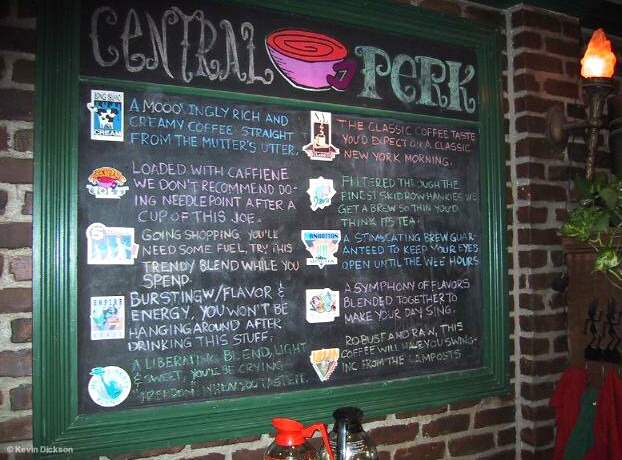 CENTRAL PERK
LONG ISLAND
CREAM
A MOOO,,INGLY RICH AND
CREAMY COFFEE STRAIGHT
FROM THE MUTTER'S UTTER.
LOADED WITH CAFFIENE
WE DON'T RECOMMEND DO-
ING NEEDLEPOINT AFTER A
CUP OF THIS JOE.
GOING SHOPPING, YOU'LL
NEED SOME FUEL, TRY THIS
TRENDY BLEND WHILE YOU
SPEND.
EMPIRE
BURSTING W/FLAVOR &
ENERGY, YOU WON'T BE
HANGING AROUND AFTER
DRINKING THIS STUFF.
A LIBERATING BLEND, LIGHT
& SWEET, YOU'LL BE CRYING
"FREEDOM" WHEN YOU TASTE IT.
THE CLASSIC COFFEE TASTE
YOU'D EXPECT ON A CLASSIC
NEW YORK MORNING.
FILTERED THROUGH THE
FINEST SKID ROW HANKIES WE
GET A BREW SO THIN YOU'D
THINK ITS TEA.
MANHATTAN
A STIMULATING BREW GUAR-
ANTEED TO KEEP YOUR EYES
OPEN UNTIL THE WEE HOURS
A SYMPHONY OF FLAVORS
BLENDED TOGETHER TO
MAKE YOUR DAY SING.
ROBUST AND RAW, THIS
COFFEE WILL HAVE YOU SWING-
ING FROM THE LAMPOSTS
© Kevin Dickson